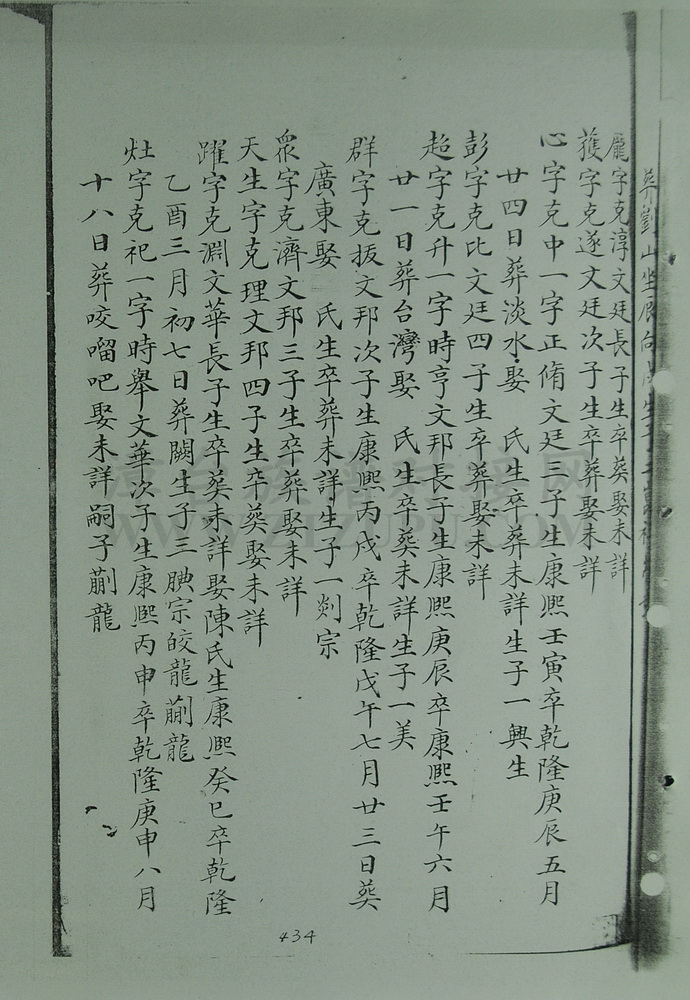 葬劉山坐辰向
龐字克淳文廷長子生卒葵娶未詳
獲字克遂文廷次子生卒葬娶未詳
心字克中一字正脩文廷三子生康熙壬寅卒乾隆庚辰五月
廿四日葬淡水娶　氏生卒葬未詳生子一興生
彭字克比文廷四子生卒葬娶未詳
超字克升一字時亨文邦長子生康熙庚辰卒康熙壬午六月
廿一日葬台灣娶　氏生卒葵未詳生子一美
群字克拔文邦次子生康熙丙戌卒乾隆戊午七月廿三日葵
廣東娶　氏生卒葬未詳生子一剡宗
眾字克濟文邦三子生卒葬娶未詳
天生字克理文邦四子生卒葵娶未詳
躍字克淵文華長子生卒葵未詳娶陳氏生康熙癸巳卒乾隆
乙酉三月初七日葬闕生子三腆宗皎龍蒯龍
灶字克祀一字時舉文華次子生康熙丙申卒乾隆庚申八月
十八日葬咬𠺕吧娶未詳嗣子蒯龍
434
WWW.ZTZUPU.COM